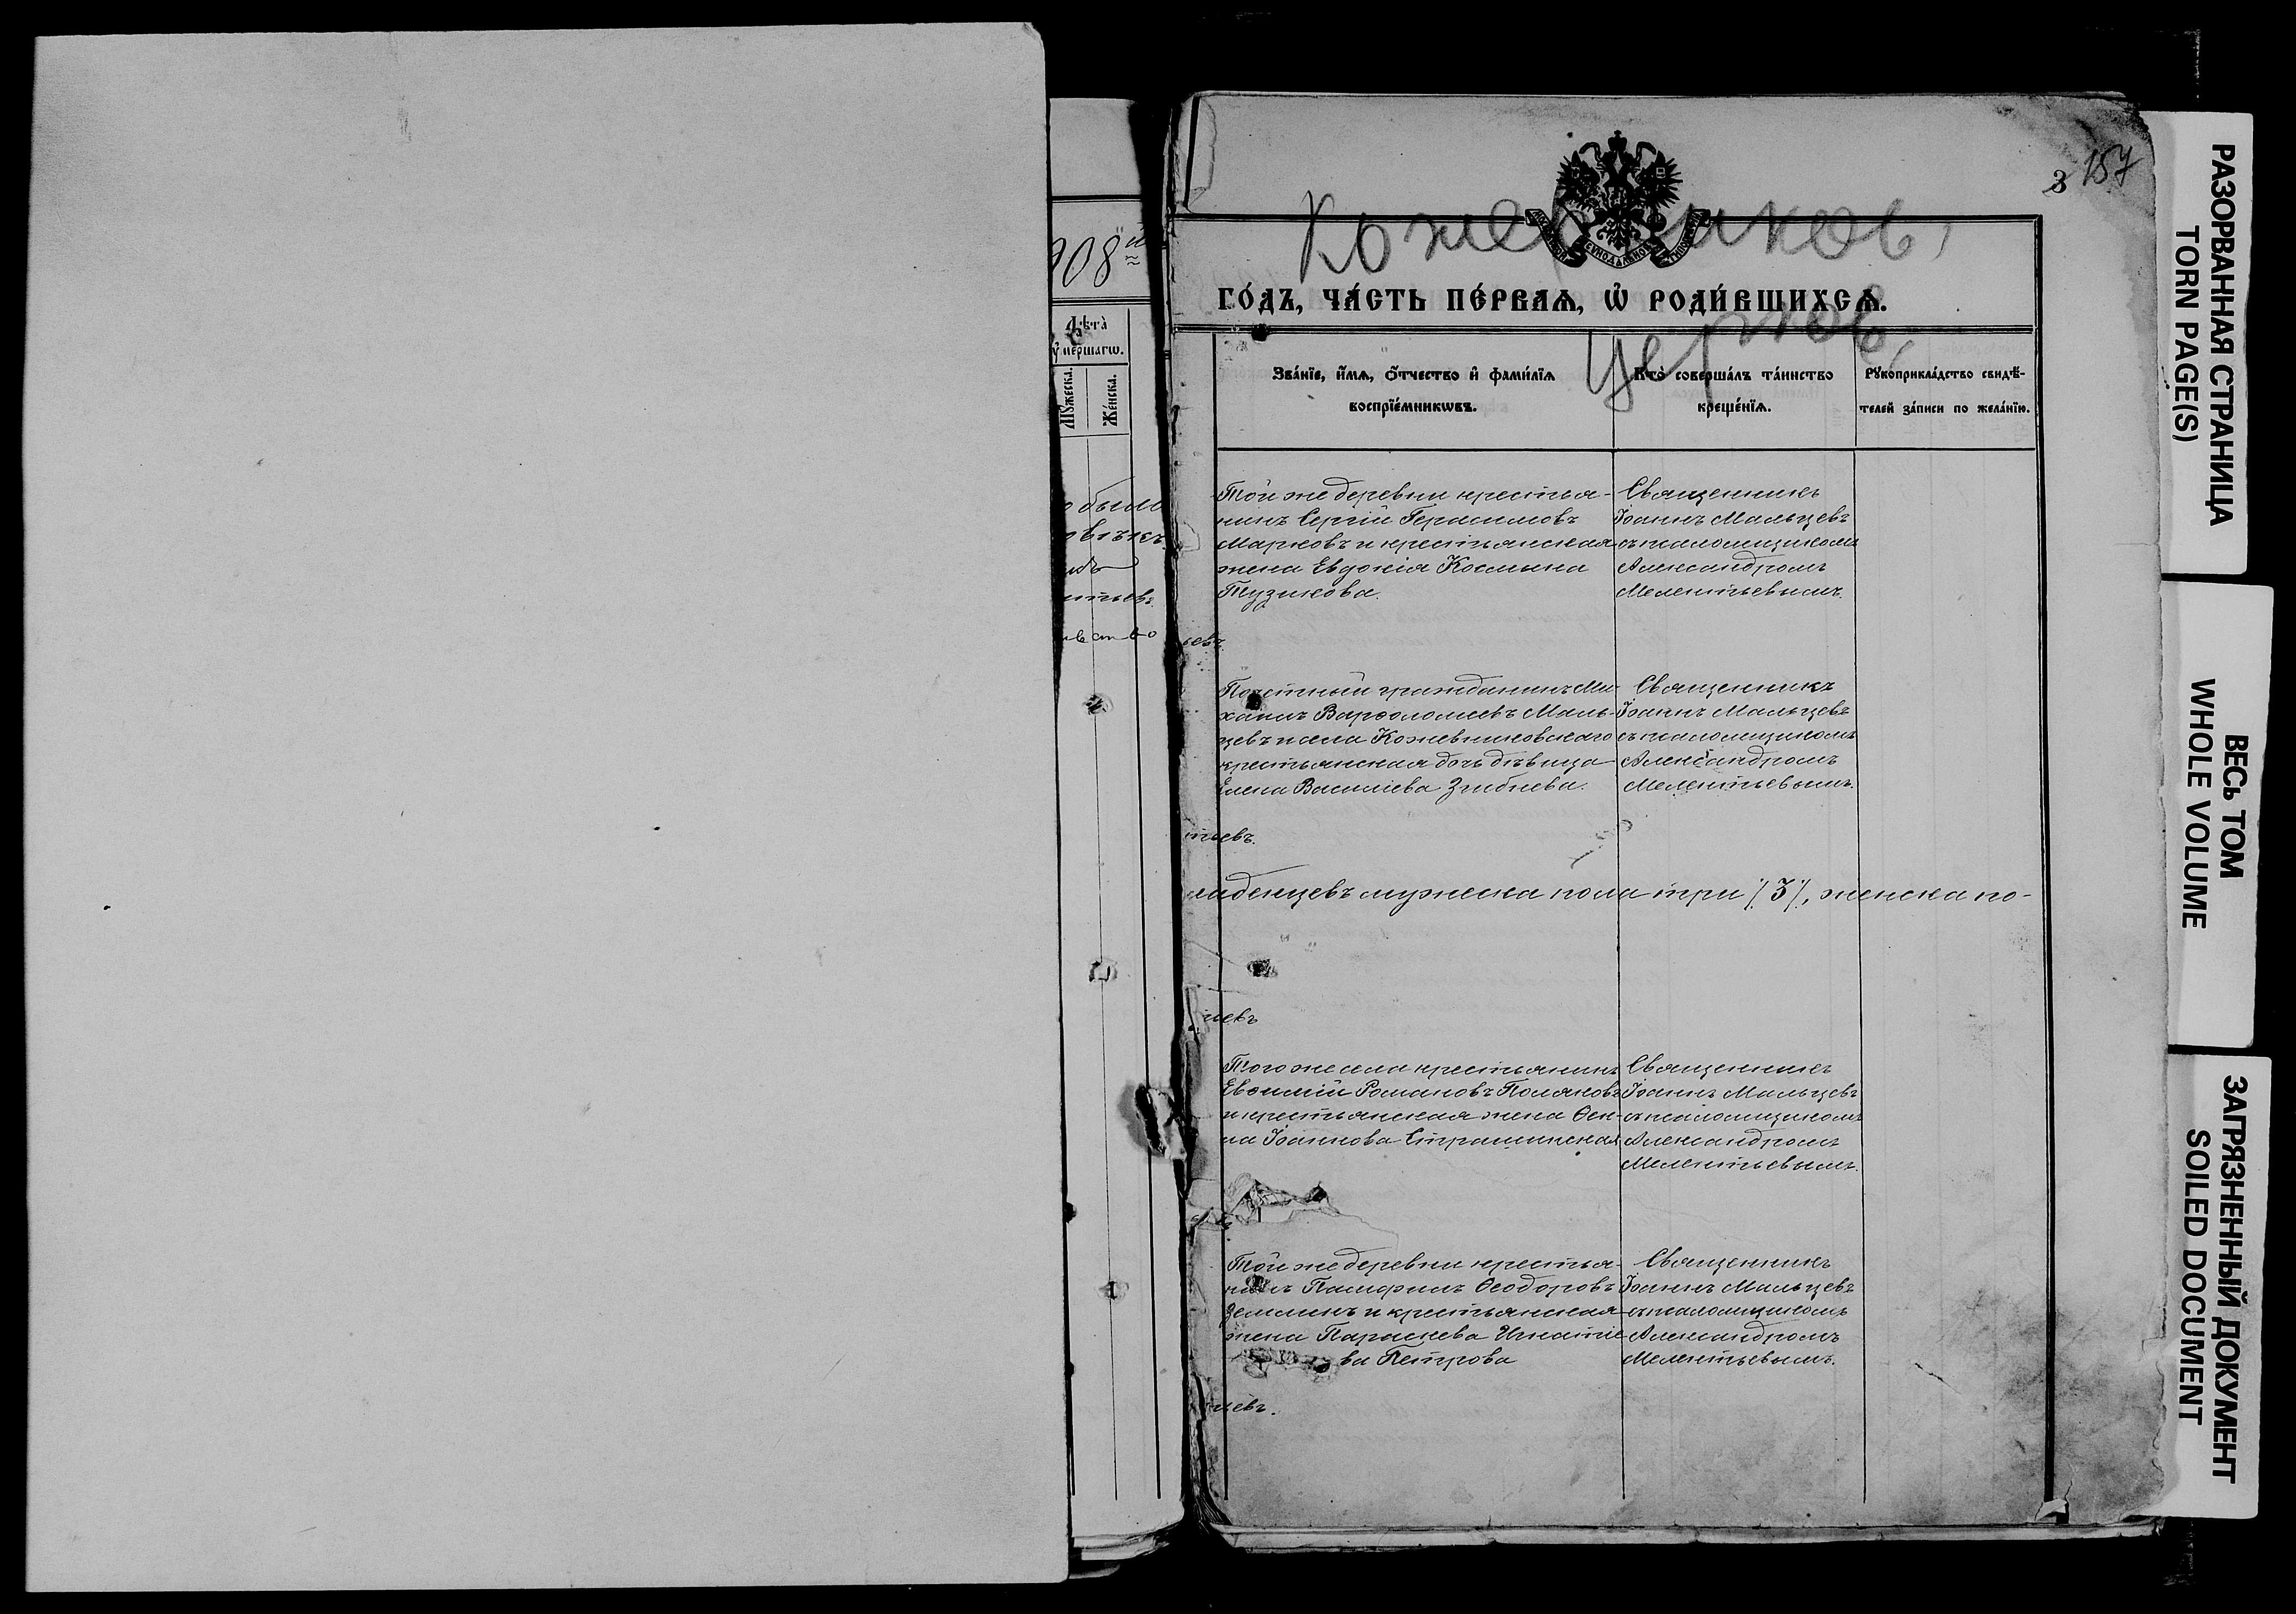 908й
Лѣта̀
у҆ме́ршагѡ.
Мꙋ́жеска.
Же́нска.
было
3 157
Кожевников.
церков.
СѴНОДАЛЬНОЙ
ГО́ДЪ, ЧА́СТЬ ПЕ́РВАѦ, Ѡ҆ РОДИ́ВШИХСѦ.
Зва́нїе, и҆́мѧ, ѻ҆́тчество и҆ фами́лїѧ
воспрїе́мникѡвъ.
Кто̀ соверша́лъ та́инство
креще́нїѧ.
Рꙋкоприкла́дство свидѣ́-
телей за́писи по жела́нїю.
Той же деревни крестья-
нинъ Сергій Герасимовъ
Марковъ и крестьянская
жена Евдокія Космина
Тузикова.
Священникъ
Іоаннъ Мальцевъ
съ псаломщикомъ
Александромъ
Мелентьевымъ.
Почетный гражданинъ Ми-
хаилъ Варѳоломеевъ Маль-
цевъ и села Кожевниковскаго
крестьянская дочь дѣвица
Елена Василіева Згибнева.
Священникъ
Іоаннъ Мальцевъ
съ псаломщикомъ
Александромъ
Мелентьевымъ.
тьевъ.
младенцевъ мужеска пола три /3/, женска по-
Того же села крестьянинъ
Евѳимій Романовъ Поляковъ
и крестьянская жена Ѳек-
ла Іоаннова Страшинская
Священникъ
Іоаннъ Мальцевъ
съ псаломщикомъ
Александромъ
Мелентьевымъ.
Той же деревни крестья-
нинъ Памфилъ Ѳеодоровъ
Землинъ и крестьянская
жена Параскева Игнатіе-
ва Петрова
Священникъ
Іоаннъ Мальцевъ
съ псаломщикомъ
Александромъ
Мелентьевымъ.
РАЗОРВАННАЯ СТРАНИЦА
TORN PAGE(S)
ВЕСЬ ТОМ
WHOLE VOLUME
ЗАГРЯЗНЕННЫЙ ДОКУМЕНТ
SOILED DOCUMENT